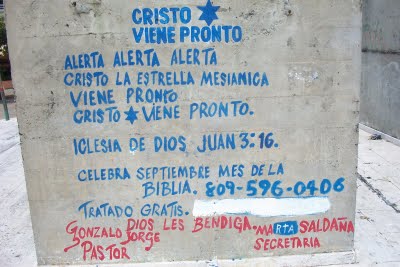 CRISTO
VIENE PRONTO
ALERTA ALERTA ALERTA
CRISTO LA ESTRELLA MESIANICA
VIENE PRONTO
CRISTO VIENE PRONTO.
IGLESIA DE DIOS JUAN 3:16.
CELEBRA SEPTIEMBRE MES DE LA
BIBLIA. 809-596-0406
TRATADO GRATIS.
DIOS LES BENDIGA.
GONZALO JORGE
PASTOR
MARTA SALDAÑA
SECRETARIA